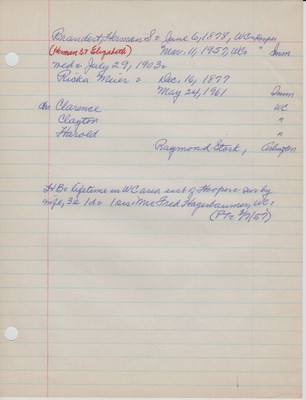 Brandert, Herman S = June 6, 1878, WC = Hooper,
(Herman ST Elizabeth) Mar. 11, 1957, WC = " 2mm
wed = July 29, 1903 =
Ricka Meier = Dec. 16, 1877
May 24, 1961 2mm
ch = Clarence "
Clayton "
Harold "
Raymond Stork, Arlington
HB = Lifetime in WC area sect of Hooper = Sur by
wife, 3s 1d = 1 sis = Mrs Fred Hagerbaumer, WC =
(FT = 3/7/57)